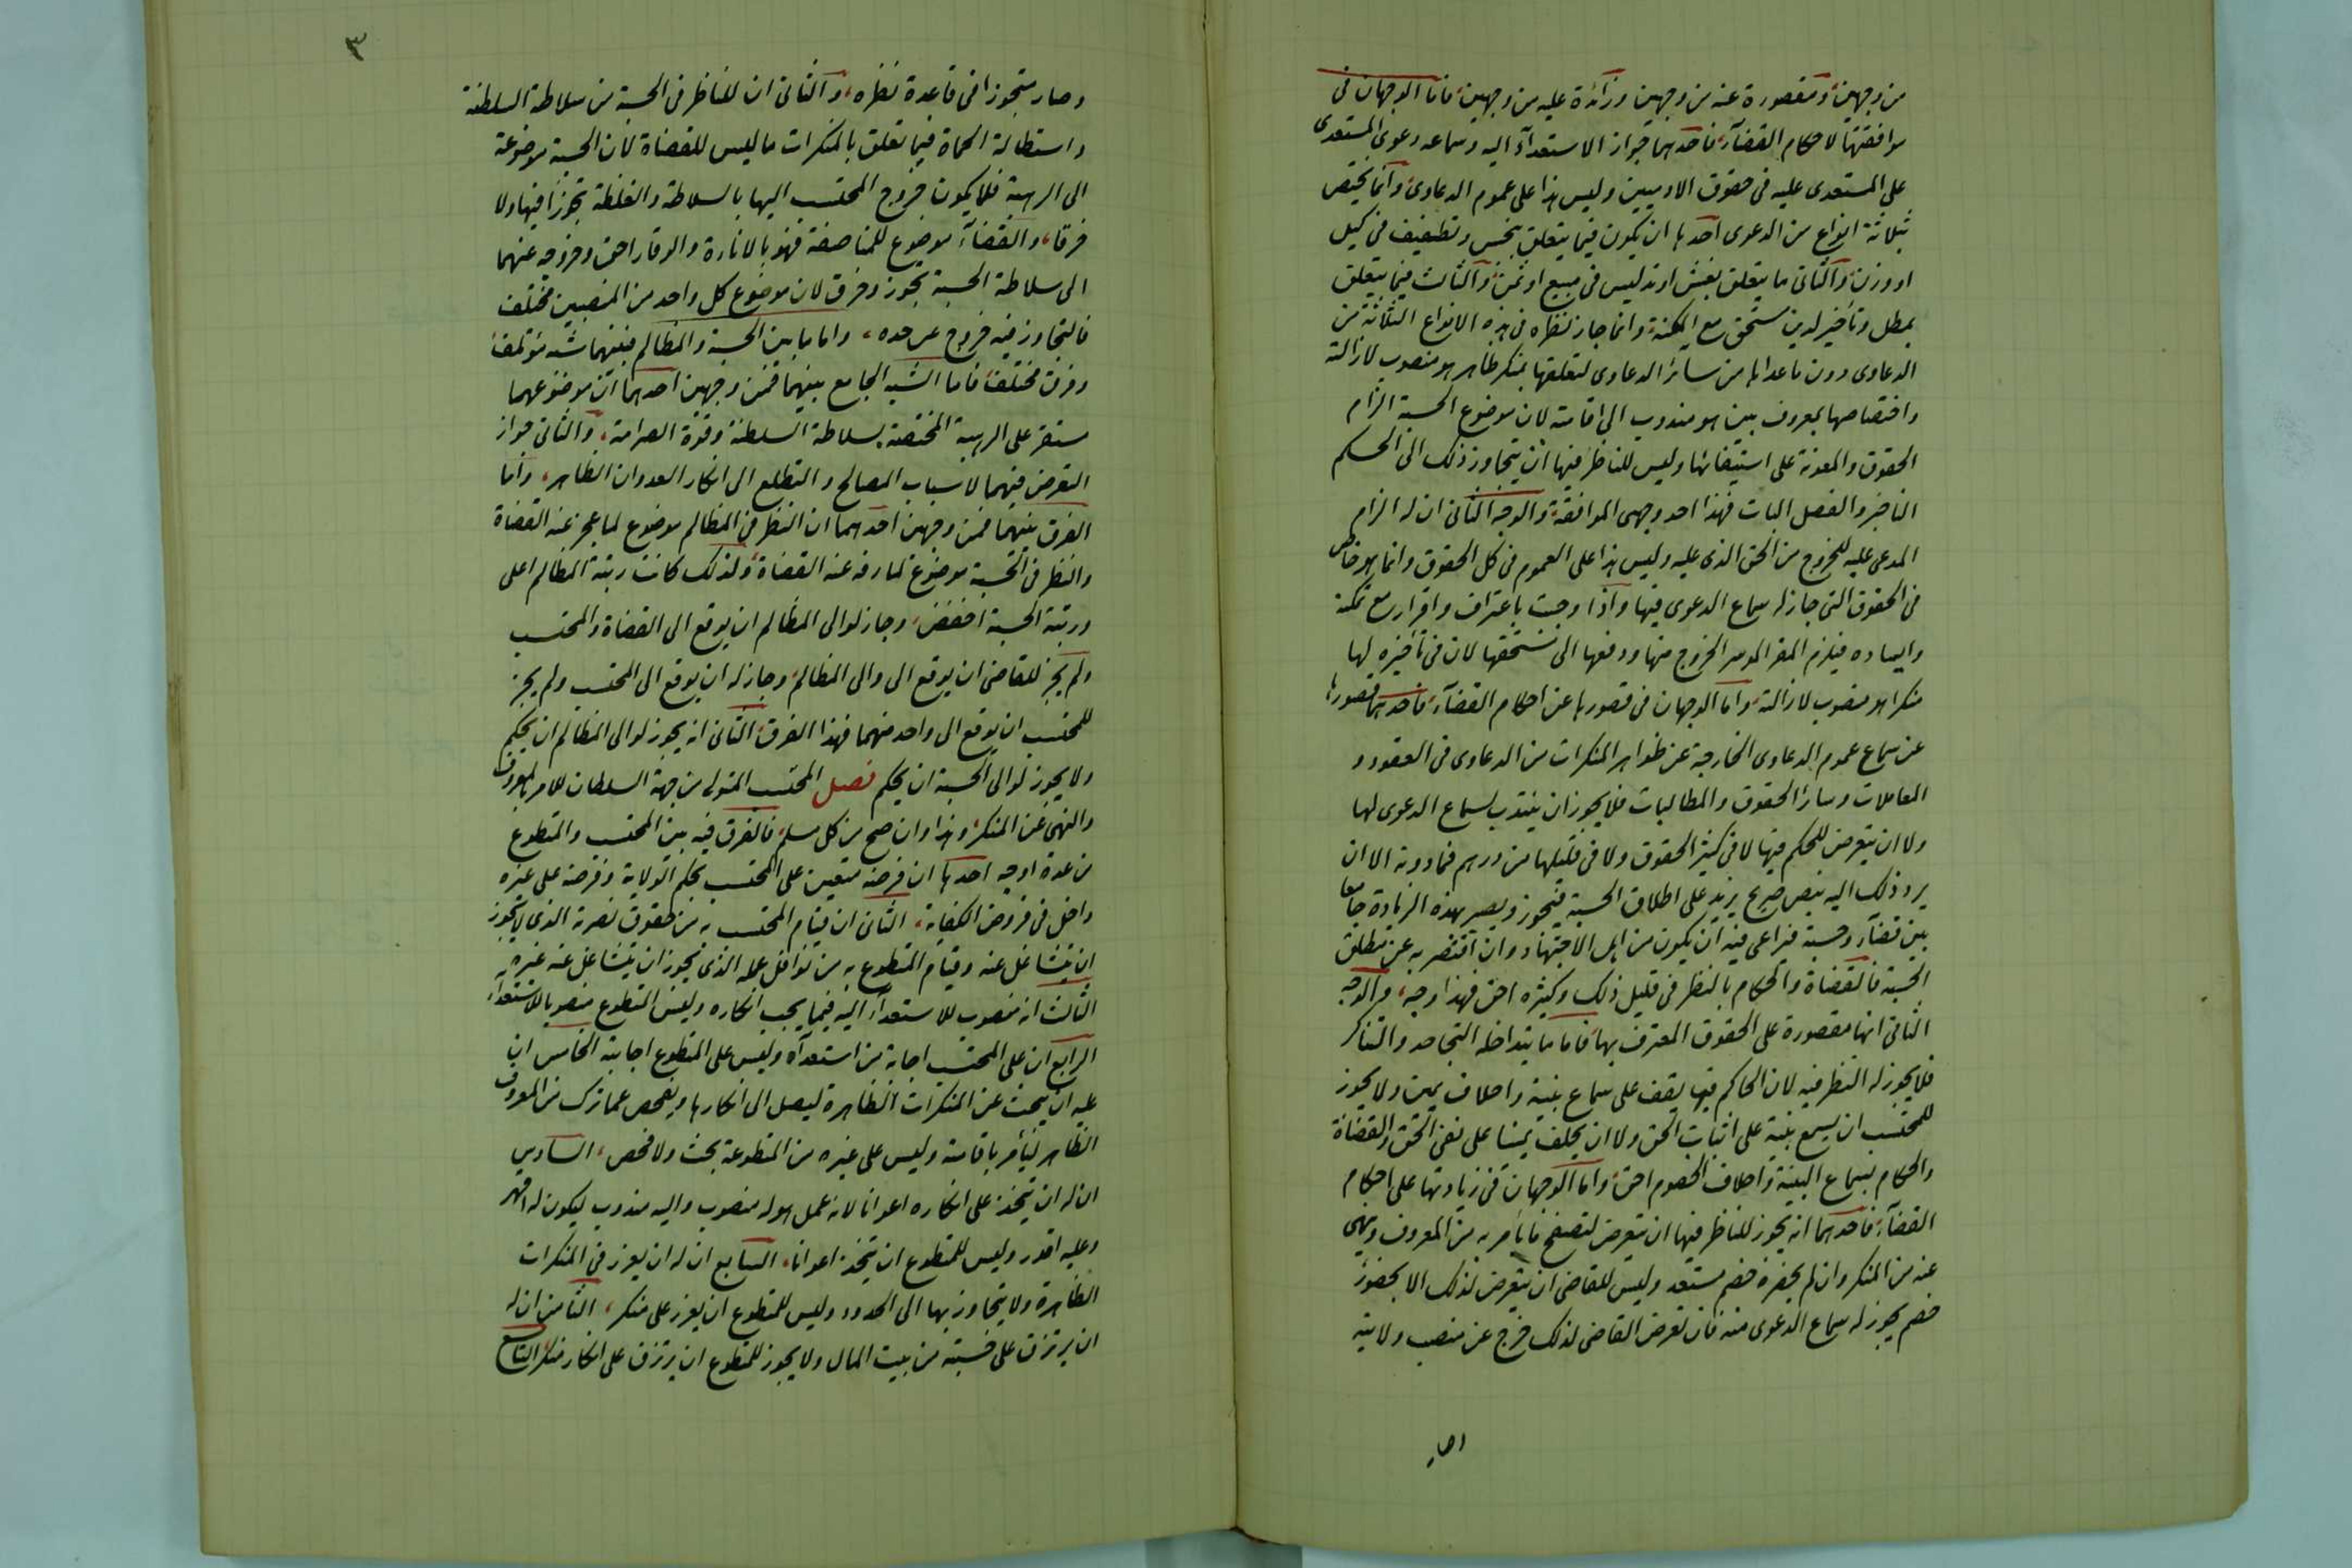 من وجهين ومقصورة عنه من وجهين وزائدة عليه من وجهين فاما الوجهان فى
موافقتها لاحكام القضآء فاحدهما جواز الاستعدآء اليه وسماعه دعوى المستعدى
على المستعدى عليه فى حقوق الادميين وليس هذا على عموم الدعاوى وانما يختص
بثلاثة انواع من الدعوى احدها ان يكون فيما يتعلق ببخس وتطفيف فى كيل
او وزن والثانى ما يتعلق بغش او تدليس فى مبيع او ثمن والثالث فيما يتعلق
بمطل وتأخير لدين مستحق مع المكنة وانما جاز نظره فى هذه الانواع الثلاثة من
الدعاوى دون ما عداها من سائر الدعاوى لتعلقها بمنكر ظاهر هو منصوب لازالته
واختصاصها بمعروف بين هو مندوب الى اقامته لان موضوع الحسبة الزام
الحقوق والمعونة على استيفائها وليس للناظر فيها ان يتجاوز ذلك الى الحكم
الناجز والفصل البات فهذا احد وجهى الموافقة والوجه الثانى ان له الزام
المدعى عليه للخروج من الحق الذى عليه وليس هذا على العموم فى كل الحقوق وانما هو خاص
فى الحقوق التى جاز له سماع الدعوى فيها واذا وجبت باعتراف واقرار مع تمكنه
وايساره فيلزم المقر الموسر الخروج منها ودفعها الى مستحقها لان فى تأخيره لها
منكرا هو منصوب لازالته واما الوجهان فى قصورها عن احكام القضآء فاحدهما قصورها
عن سماع عموم الدعاوى الخارجة عن ظواهر المنكرات من الدعاوى فى العقود و
المعاملات وسائر الحقوق والمطالبات فلا يجوز ان ينتدب لسماع الدعوى لها
ولا ان يتعرض للحكم فيها لا فى كثير الحقوق ولا فى قليلها من درهم فما دونه الا ان
يرد ذلك اليه بنص صريح يزيد على اطلاق الحسبة فيجوز ويصير بهذه الزيادة جامعا
بين قضآء وحسبة فيراعى فيه ان يكون من اهل الاجتهاد وان اقتصر به عن مطلق
الحسبة فالقضاة والحكام بالنظر فى قليل ذلك وكثيره احق فهذا وجه، والوجه
الثانى انها مقصورة على الحقوق المعترف بها فاما ما يتداخله التجاحد والتناكر
فلا يجوز له النظر فيه لان الحاكم فيها يقف على سماع بينة واحلاف يمين ولا يجوز
للمحتسب ان يسمع بينة على اثبات الحق ولا ان يحلف يمينا على نفى الحق والقضاة
والحكام بسماع البينة واحلاف الخصوم احق واما الوجهان فى زيادتها على احكام
القضآء فاحدهما انه يجوز للناظر فيها ان يتعرض لتصفح ما يأمر به من المعروف وينهى
عنه من المنكر وان لم يحضره خصم مستعد وليس للقاضى ان يتعرض لذلك الا بحضور
خصم يجوز له سماع الدعوى منه فان تعرض القاضى لذلك خرج عن منصب ولايته
٣
وصار متجوزا فى قاعدة نظره، والثانى ان للناظر فى الحسبة من سلاطة السلطنة
واستطالة الحماة فيما تعلق بالمنكرات ما ليس للقضاة لان الحسبة موضوعة
الى الرهبة فلا يكون خروج المحتسب اليها بالسلاطة والغلظة تجوزا فيها ولا
خرقا، والقضآء موضوع للمناصفة فهو بالاناءة والوقار احق وخروجه عنهما
الى سلاطة الحسبة تجوز وخرق لان موضوع كل واحد من المنصبين مختلف
فالتجاوز فيه خروج عن حده، واما ما بين الحسبة والمظالم فبينهما شبه مؤتلف
وفرق مختلف فاما الشبه الجامع بينهما فمن وجهين احدهما ان موضوعهما
مستقر على الرهبة المختصة بسلاطة السلطنة وقوة الصرامة، والثانى جواز
التعرض فيهما لاسباب المصالح والتطلع الى انكار العدوان الظاهر، واما
الفرق بينهما فمن وجهين احدهما ان النظر فى المظالم موضوع لما عجز عنه القضاة
والنظر فى الحسبة موضوع لما رفه عنه القضاة ولذلك كانت رتبة المظالم اعلى
ورتبة الحسبة اخفض، وجاز لوالى المظالم ان يوقع الى القضاة والمحتسب
ولم يجز للقاضى ان يوقع الى والى المظالم، وجاز له ان يوقع الى المحتسب ولم يجز
للمحتسب ان يوقع الى واحد منهما فهذا الفرق، الثانى انه يجوز لوالى المظالم ان يحكم
ولا يجوز لوالى الحسبة ان يحكم فصل المحتسب المتولى من جهة السلطان للامر بالمعروف
والنهى عن المنكر، وهذا وان صح من كل مسلم، فالفرق فيه بين المحتسب والمتطوع
من عدة اوجه احدها ان فرضه متعين على المحتسب بحكم الولاية وفرضه على غيره
داخل فى فروض الكفاية، الثانى ان قيام المحتسب به من حقوق تصرفه الذى لا يجوز
ان يتشاغل عنه وقيام المتطوع به من نوافل عمله الذى يجوز ان يتشاغل عنه بغيره
الثالث انه منصوب للاستعدآء اليه فيما يجب انكاره وليس المتطوع منصوبا للاستعدآء
الرابع ان على المحتسب اجابة من استعدآه وليس على المتطوع اجابته الخامس ان
عليه ان يبحث عن المنكرات الظاهرة ليصل الى انكارها ويفحص عما ترك من المعروف
الظاهر ليأمر باقامته وليس على غيره من المتطوعة بحث ولا فحص، السادس
ان له ان يتخذ على انكاره اعوانا لانه عمل هو له منصوب واليه مندوب ليكون له اقهر
وعليه اقدر وليس للمتطوع ان يتخذ اعوانا، السابع ان له ان يعزر فى المنكرات
الظاهرة ولا يتجاوز بها الى الحدود وليس للمتطوع ان يعزر على منكر، الثامن ان له
ان يرتزق على حسبته من بيت المال ولا يجوز للمتطوع ان يرتزق على انكار منكر التاسع